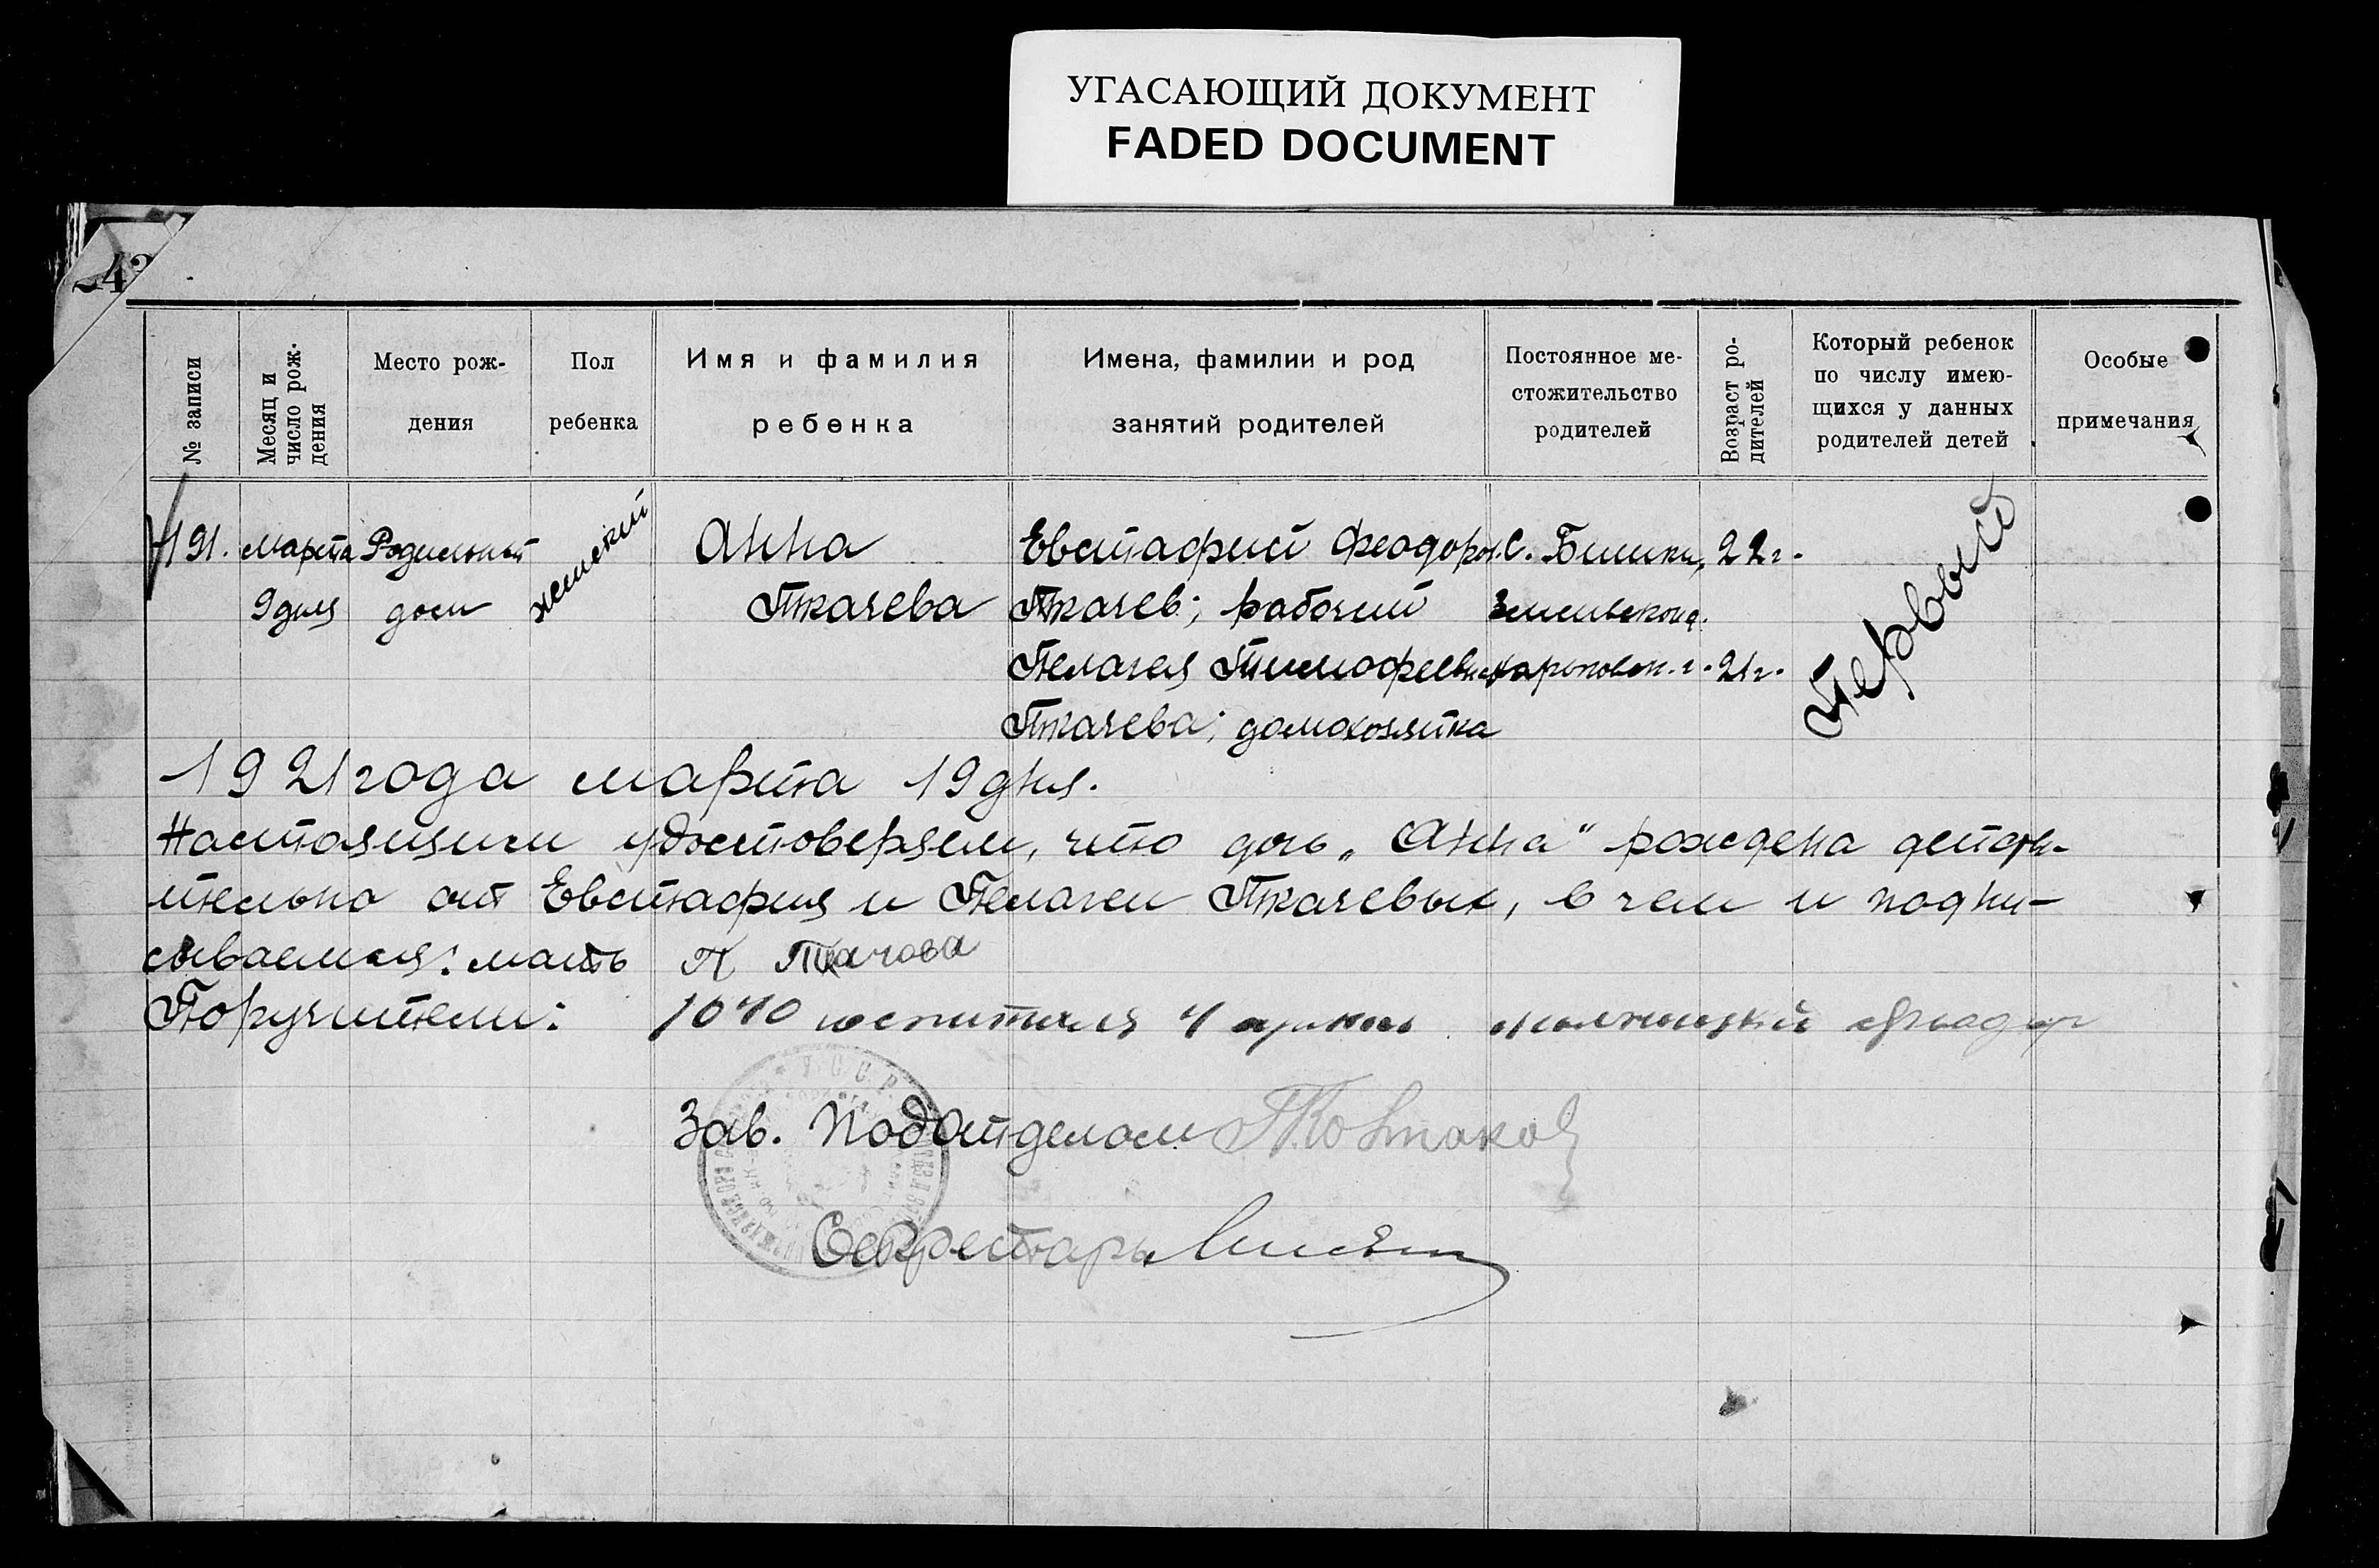 УГАСАЮЩИЙ ДОКУМЕНТ
FADED DOCUMENT
№ записи
Месяц и число рож-
дения
Место рож-
дения
Пол
ребенка
Имя и фамилия
ребенка
Имена, фамилии и род
занятий родителей
Постоянное ме-
стожительство
родителей
Возраст ро-
дителей
Который ребенок
по числу имею-
щихся у данных
родителей детей
Особые
примечания
191. Марта Родильный женский Анна Евстафий Феодоров. С. Бишкин, 22 г. Первый
9 дня дом Ткачева Ткачев; рабочий
Пелагея Тимофеевна Харьковск. г. 21 г.
Ткачева; домохозяйка
1921 года марта 19 дня.
Настоящим удостоверяем, что дочь „Анна“ рождена действи-
тельно от Евстафия и Пелагеи Ткачевых, в чем и подпи-
сываемся: мать П Ткачова
Поручители: 1040 госпиталя
Зав. Подотделом
Секретарь